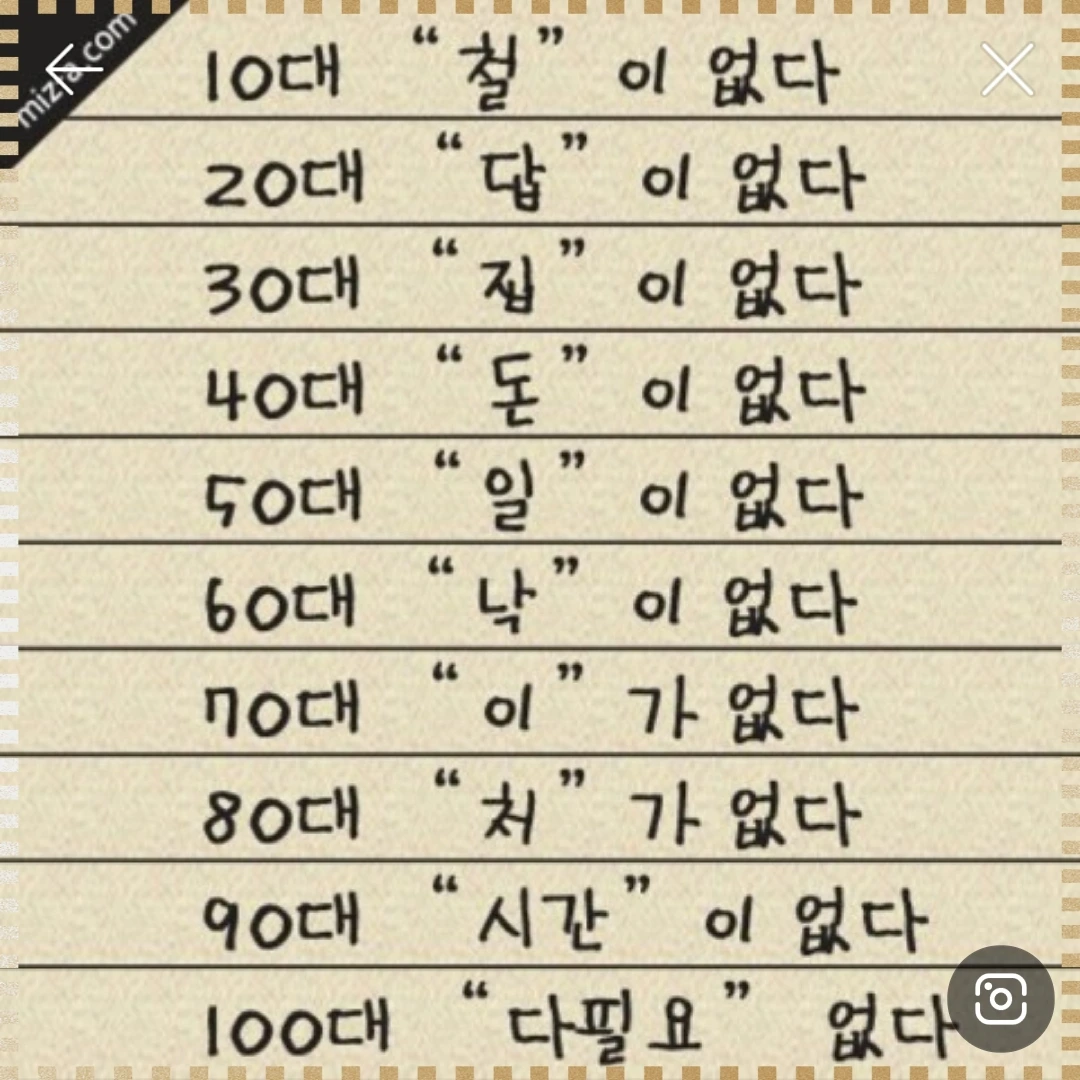 mizra.com
10대 “철” 이 없다
20대 “답” 이 없다
30대 “집” 이 없다
40대 “돈” 이 없다
50대 “일” 이 없다
60대 “낙” 이 없다
70대 “이” 가 없다
80대 “처” 가 없다
90대 “시간” 이 없다
100대 “다필요” 없다